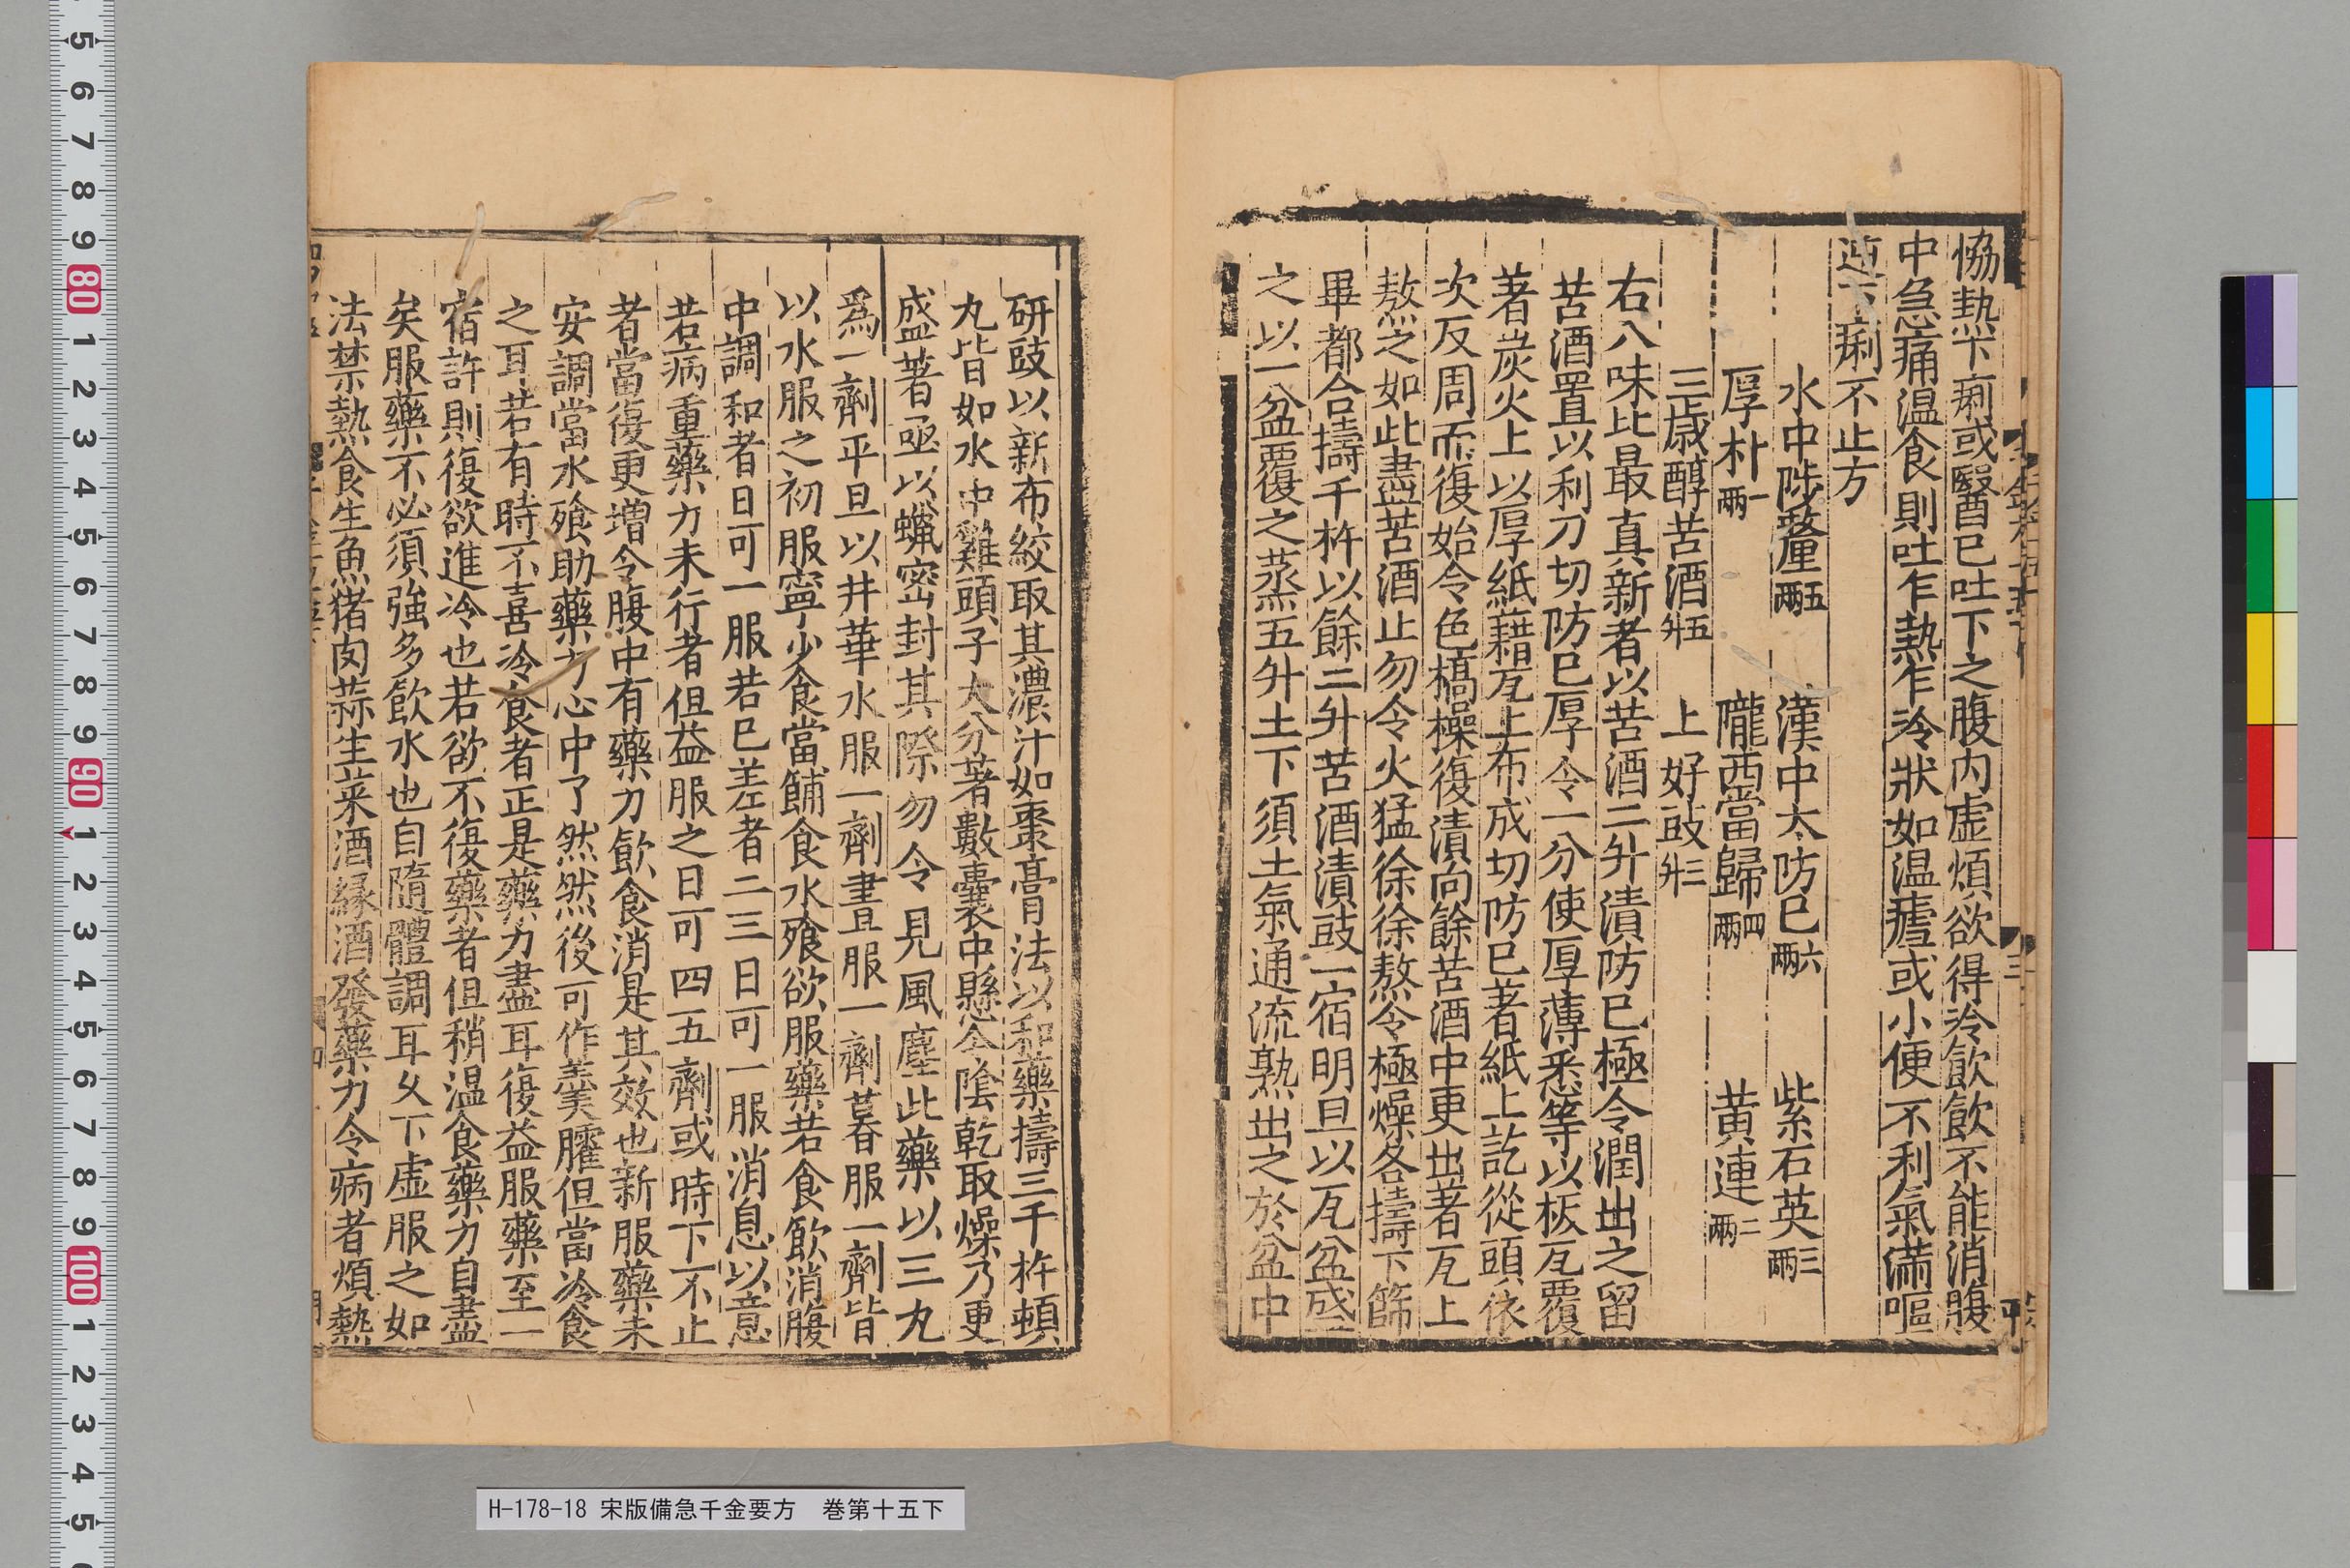 協熱下痢或醫已吐下之腹內虛煩欲得冷飲飲不能消腹
中急痛溫食則吐乍熱乍冷狀如溫瘧或小便不利氣滿嘔
逆下痢不止方
水中陟釐五兩 漢中木防巳六兩 紫石英三兩
厚朴一兩 隴西當歸四兩 黃連二兩
三歲醇苦酒五升 上好豉三升
右八味比最真新者以苦酒二升漬防巳極令潤出之留
苦酒置以利刀切防巳厚令一分使厚薄悉等以板瓦覆
著炭火上以厚紙藉瓦上布成切防巳著紙上訖從頭依
次反周而復始令色槁燥復漬向餘苦酒中更出著瓦上
熬之如此盡苦酒止勿令火猛徐徐熬令極燥各擣下篩
畢都合擣千杵以餘二升苦酒漬豉一宿明旦以瓦盆盛
之以一盆覆之蒸五升土下須土氣通流熟出之於盆中
研豉以新布絞取其濃汁如棗膏法以和藥擣三千杵頓
丸皆如水中雞頭子大分著數囊中懸令陰乾取燥乃更
盛著亟以蠟密封其際勿令見風塵此藥以三丸
爲一劑平旦以井華水服一劑晝服一劑暮服一劑皆
以水服之初服寧少食當餔食水飱欲服藥若食飲消腹
中調和者日可一服若已差者二三日可一服消息以意
若病重藥力未行者但益服之日可四五劑或時下不止
者當復更增令腹中有藥力飲食消是其效也新服藥未
安調當水飱助藥力心中了然然後可作羹臛但當冷食
之耳若有時不喜冷食者正是藥力盡耳復益服藥至一
宿許則復欲進冷也若欲不復藥者但稍溫食藥力自盡
矣服藥不必須強多飲水也自隨體調耳久下虛服之如
法禁熱食生魚猪肉蒜生菜酒緣酒發藥力令病者煩熱
H-178-18 宋版備急千金要方　巻第十五下